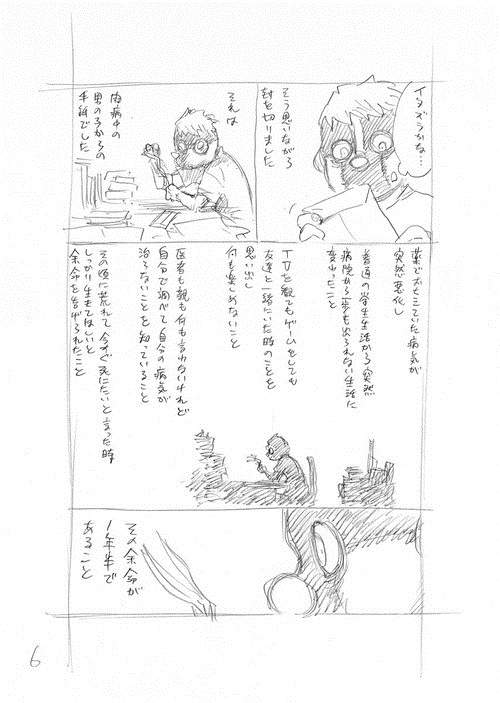 イタズラかな…
そう思いながら
封を切りました
それは
闘病中の
男の子からの
手紙でした
薬でおさえていた病気が
突然悪化し
普通の学生生活から突然
病院から一歩も出られない生活に
変わったこと
TVを観てもゲームをしても
友達と一緒にいた時のことを
思い出し
何も楽しめないこと
医者も親も何も言わないけれど
自分で調べて自分の病気が
治らないことを知っていること
その頃に荒れて今すぐ死にたいと言った時
しっかり生きてほしいと
余命を告げられたこと
その余命が
1年半で
あること
6